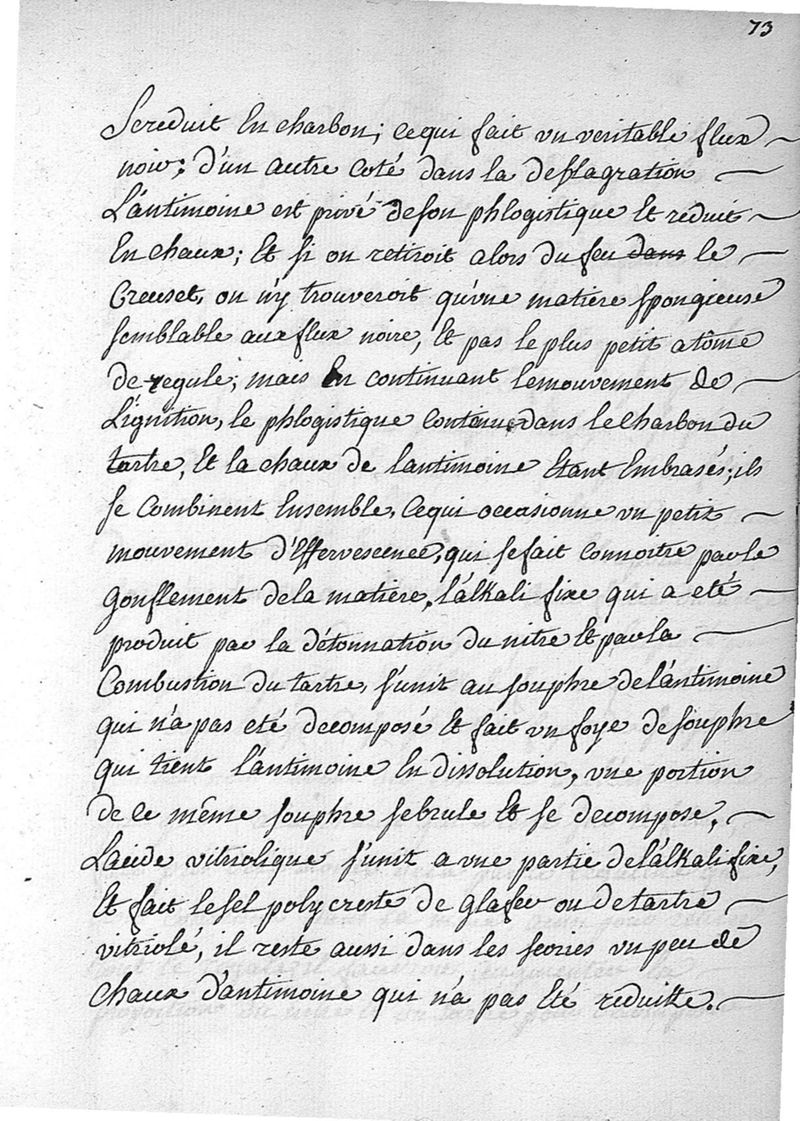 73
Se reduit En charbon; ce qui fait vn veritable flux
noir; d'un autre coté dans la deflagration
L'antimoine est privé de son phlogistique Et réduit
En chaux; Et si on retiroit alors du feu dans le
Creuset, on n'y trouveroit qu'vne matiere spongieuse
semblable aux flux noire, Et pas le plus petit atôme
de regule; mais En continuant le mouvement de
L'ignition, le phlogistique contenu dans le Charbon du
tartre, Et la chaux de l'antimoine Etant Embrasés; ils
se Combinent Ensemble, Ce qui occasionne vn petit
mouvement d'Effervescence, qui se fait connoitre par le
gonflement de la matiere, l'alkali fixe qui a eté
produit par la détonnation du nitre Et par la
Combustion du tartre, s'unit au souphre de l'antimoine
qui n'a pas eté decomposé Et fait vn foye de souphre
qui tient l'antimoine En dissolution, vne portion
de ce même souphre se brule Et se decompose,
L'acide vitriolique s'unit a vne partie de l'alkali fixe,
Et fait le sel polycreste de glaser ou de tartre
vitriolé, il reste aussi dans les scories vn peu de
Chaux d'antimoine qui n'a pas Eté reduitte.